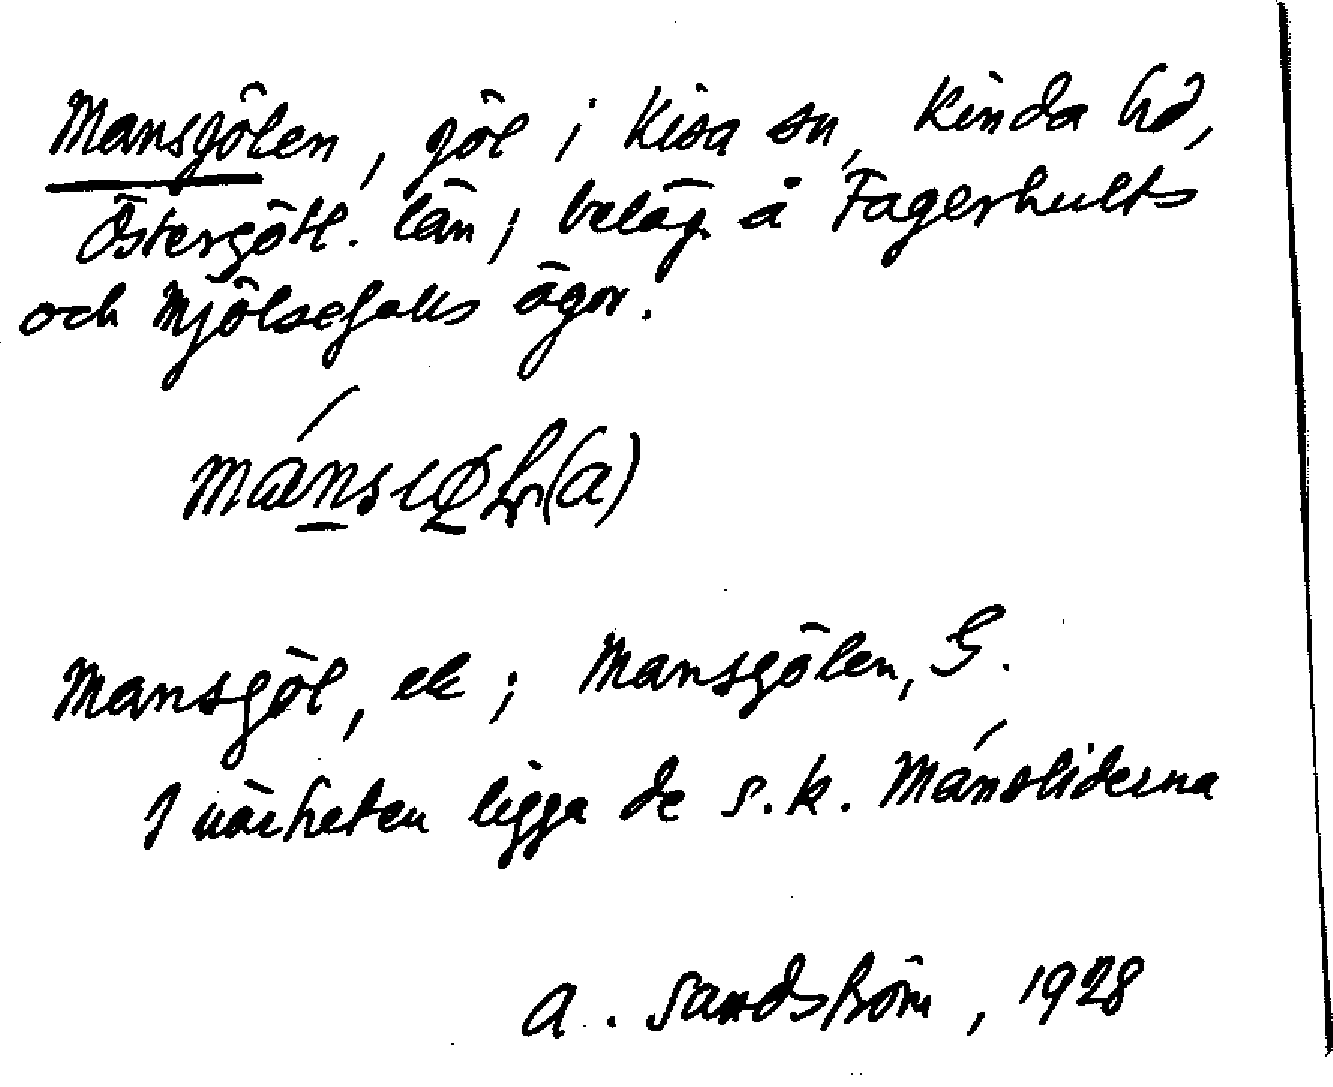 Mansgölen, göl i Kisa sn, Kinda hd,
Östergötl. län, beläg. å Fagerhults
och Mjölsefalls ägor.
Mansgöl, ek; Mansgölen, G.
I närheten ligga de s.k. Mánsliderna
A. Sandström, 1928